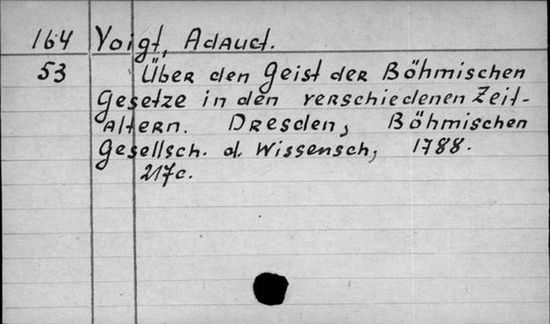 164 Voigt, Adauct.
53 Über den Geist der Böhmischen
Gesetze in den verschiedenen Zeit-
altern. Dresden, Böhmischen
Gesellsch. d. Wissensch, 1788.
217c.